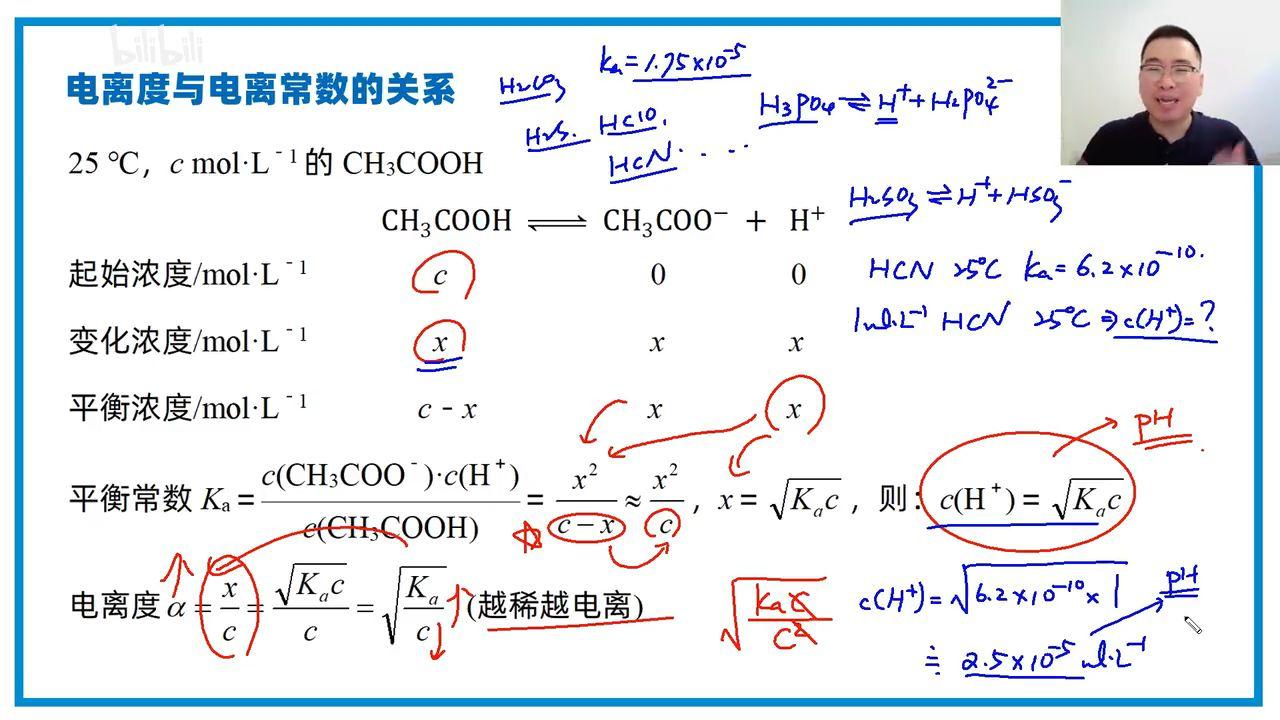 bilibili
电离度与电离常数的关系
H₂CO₃ Ka=1.75×10⁻⁵
H₂S. HClO, H₃PO₄⇌H⁺+H₂PO₄²⁻
HCN. . . . .
25 ℃，c mol·L⁻¹的 CH₃COOH
H₂SO₃⇌H⁺+HSO₃⁻
CH₃COOH ⇌ CH₃COO⁻ + H⁺
起始浓度/mol·L⁻¹ c 0 0
HCN 25℃ Ka=6.2×10⁻¹⁰.
1mol·L⁻¹ HCN 25℃ ⇒ c(H⁺)=?
变化浓度/mol·L⁻¹ x x x
平衡浓度/mol·L⁻¹ c - x x x
pH
平衡常数 Kₐ = c(CH₃COO⁻)·c(H⁺)/c(CH₃COOH) = x²/(c − x) ≈ x²/c ，x = √(Kₐc) ，则：c(H⁺) = √(Kₐc)
电离度 α = x/c = √(Kₐc)/c = √(Kₐ/c) (越稀越电离) √(Kac/c²)
c(H⁺)=√(6.2×10⁻¹⁰×1) pH
≐ 2.5×10⁻⁵ mol·L⁻¹